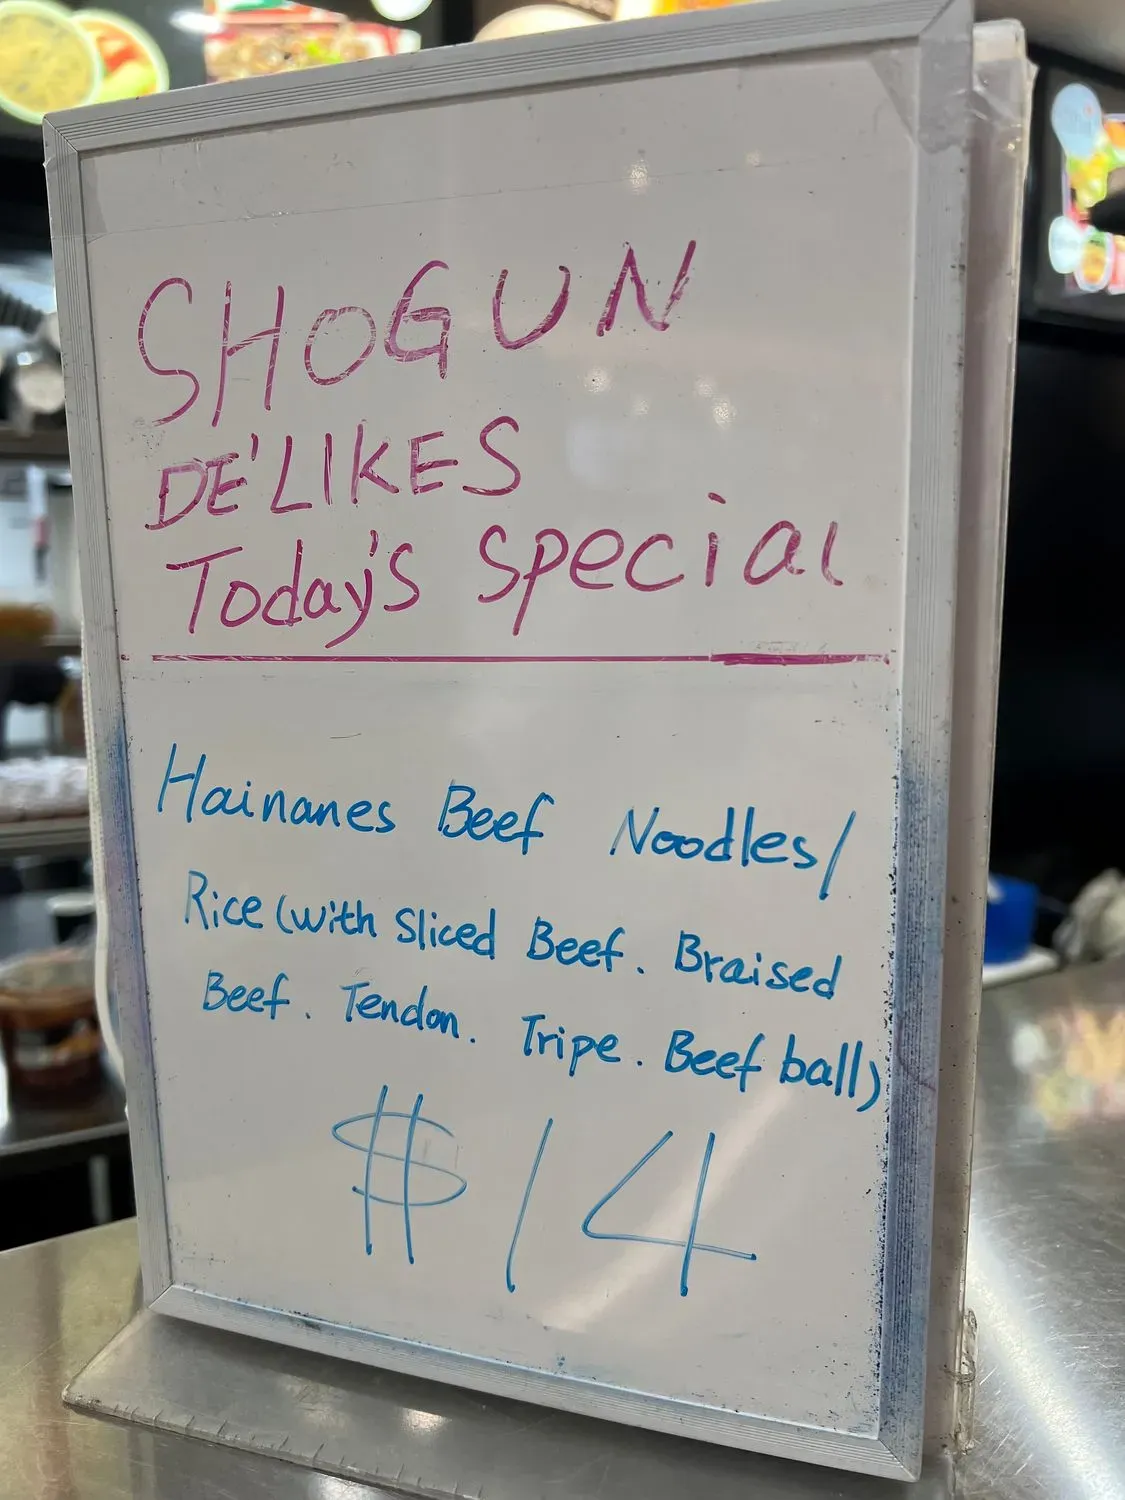 SHOGUN
DE'LIKES
Today's special
Hainanes Beef Noodles/
Rice (with Sliced Beef. Braised
Beef. Tendon. Tripe. Beef ball)
$14